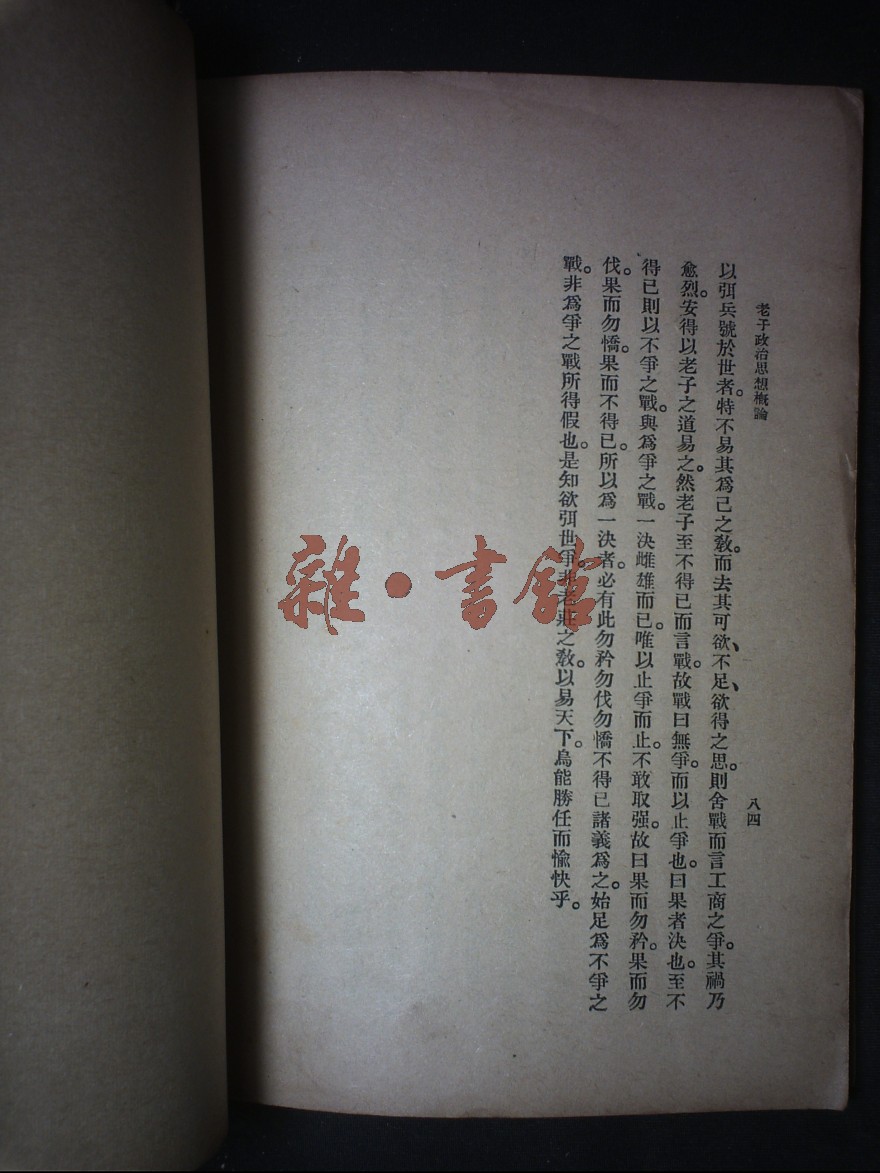 老子政治思想概論
八四
以弭兵號於世者。特不易其爲己之敎。而去其可欲、不足、欲得之思。則舍戰而言工商之爭。其禍乃
愈烈。安得以老子之道易之。然老子至不得已而言戰。故戰曰無爭。而以止爭也。曰果者決也。至不
得已則以不爭之戰。與爲爭之戰。一決雌雄而已。唯以止爭而止。不敢取强。故曰果而勿矜。果而勿
伐。果而勿憍。果而不得已。所以爲一決者。必有此勿矜勿伐勿憍不得已諸義爲之。始足爲不爭之
戰。非爲爭之戰所得假也。是知欲弭世爭。非老莊之敎。以易天下。烏能勝任而愉快乎。
雜·書館